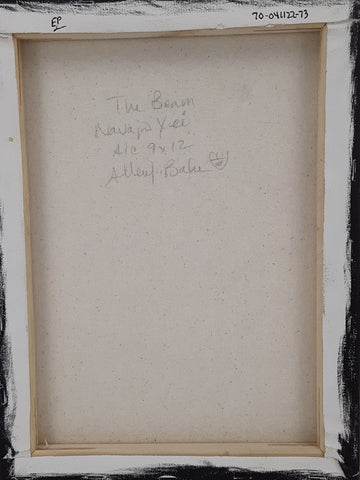 EP
70-041122-73
The Beam
Navajo Yei
A/C 9x12
Allen Bahe